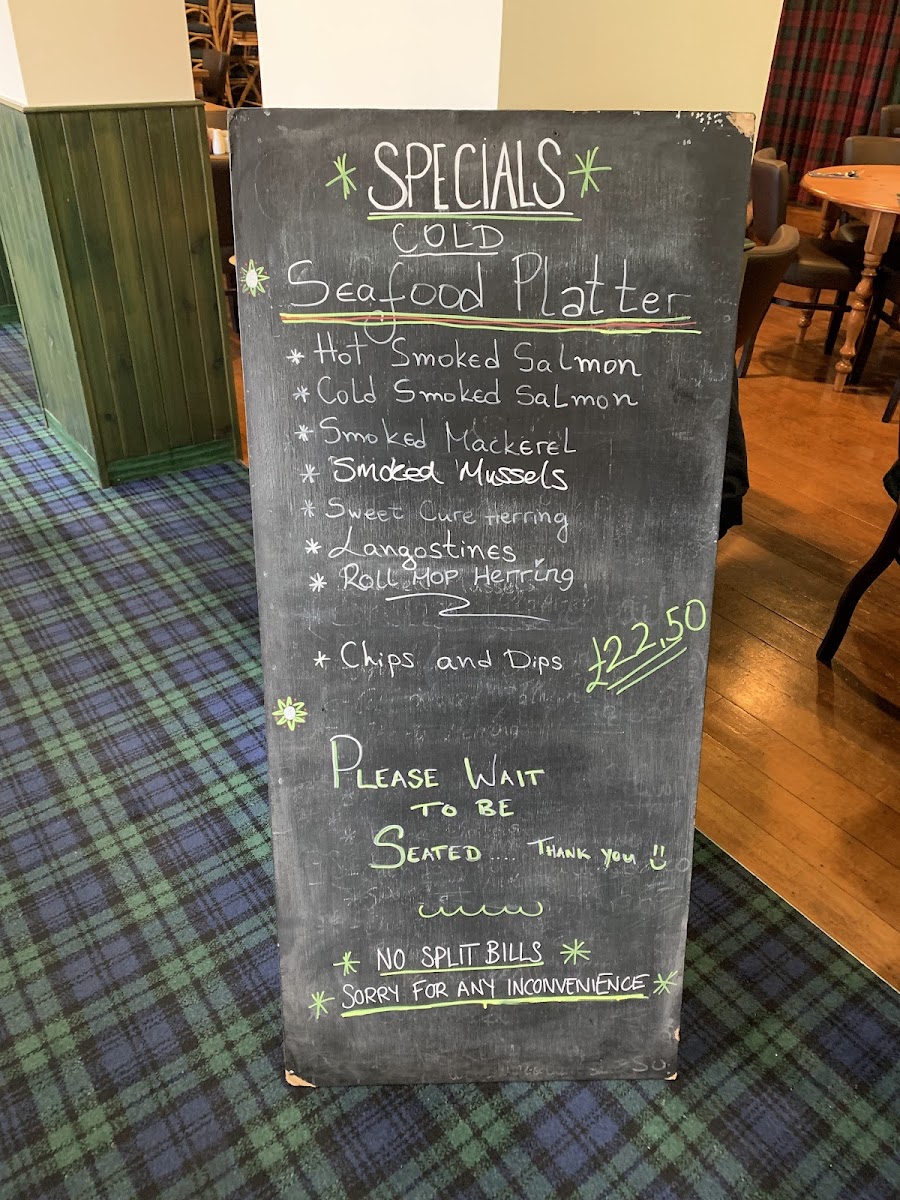 SPECIALS
COLD
Seafood Platter
* Hot Smoked Salmon
* Cold Smoked Salmon
* Smoked Mackerel
* Smoked Mussels
* Sweet Cure Herring
* Langostines
* Roll Mop Herring
* Chips and Dips £22,50
PLEASE WAIT
TO BE
SEATED.... THANK YOU !!
* NO SPLIT BILLS *
* SORRY FOR ANY INCONVENIENCE *